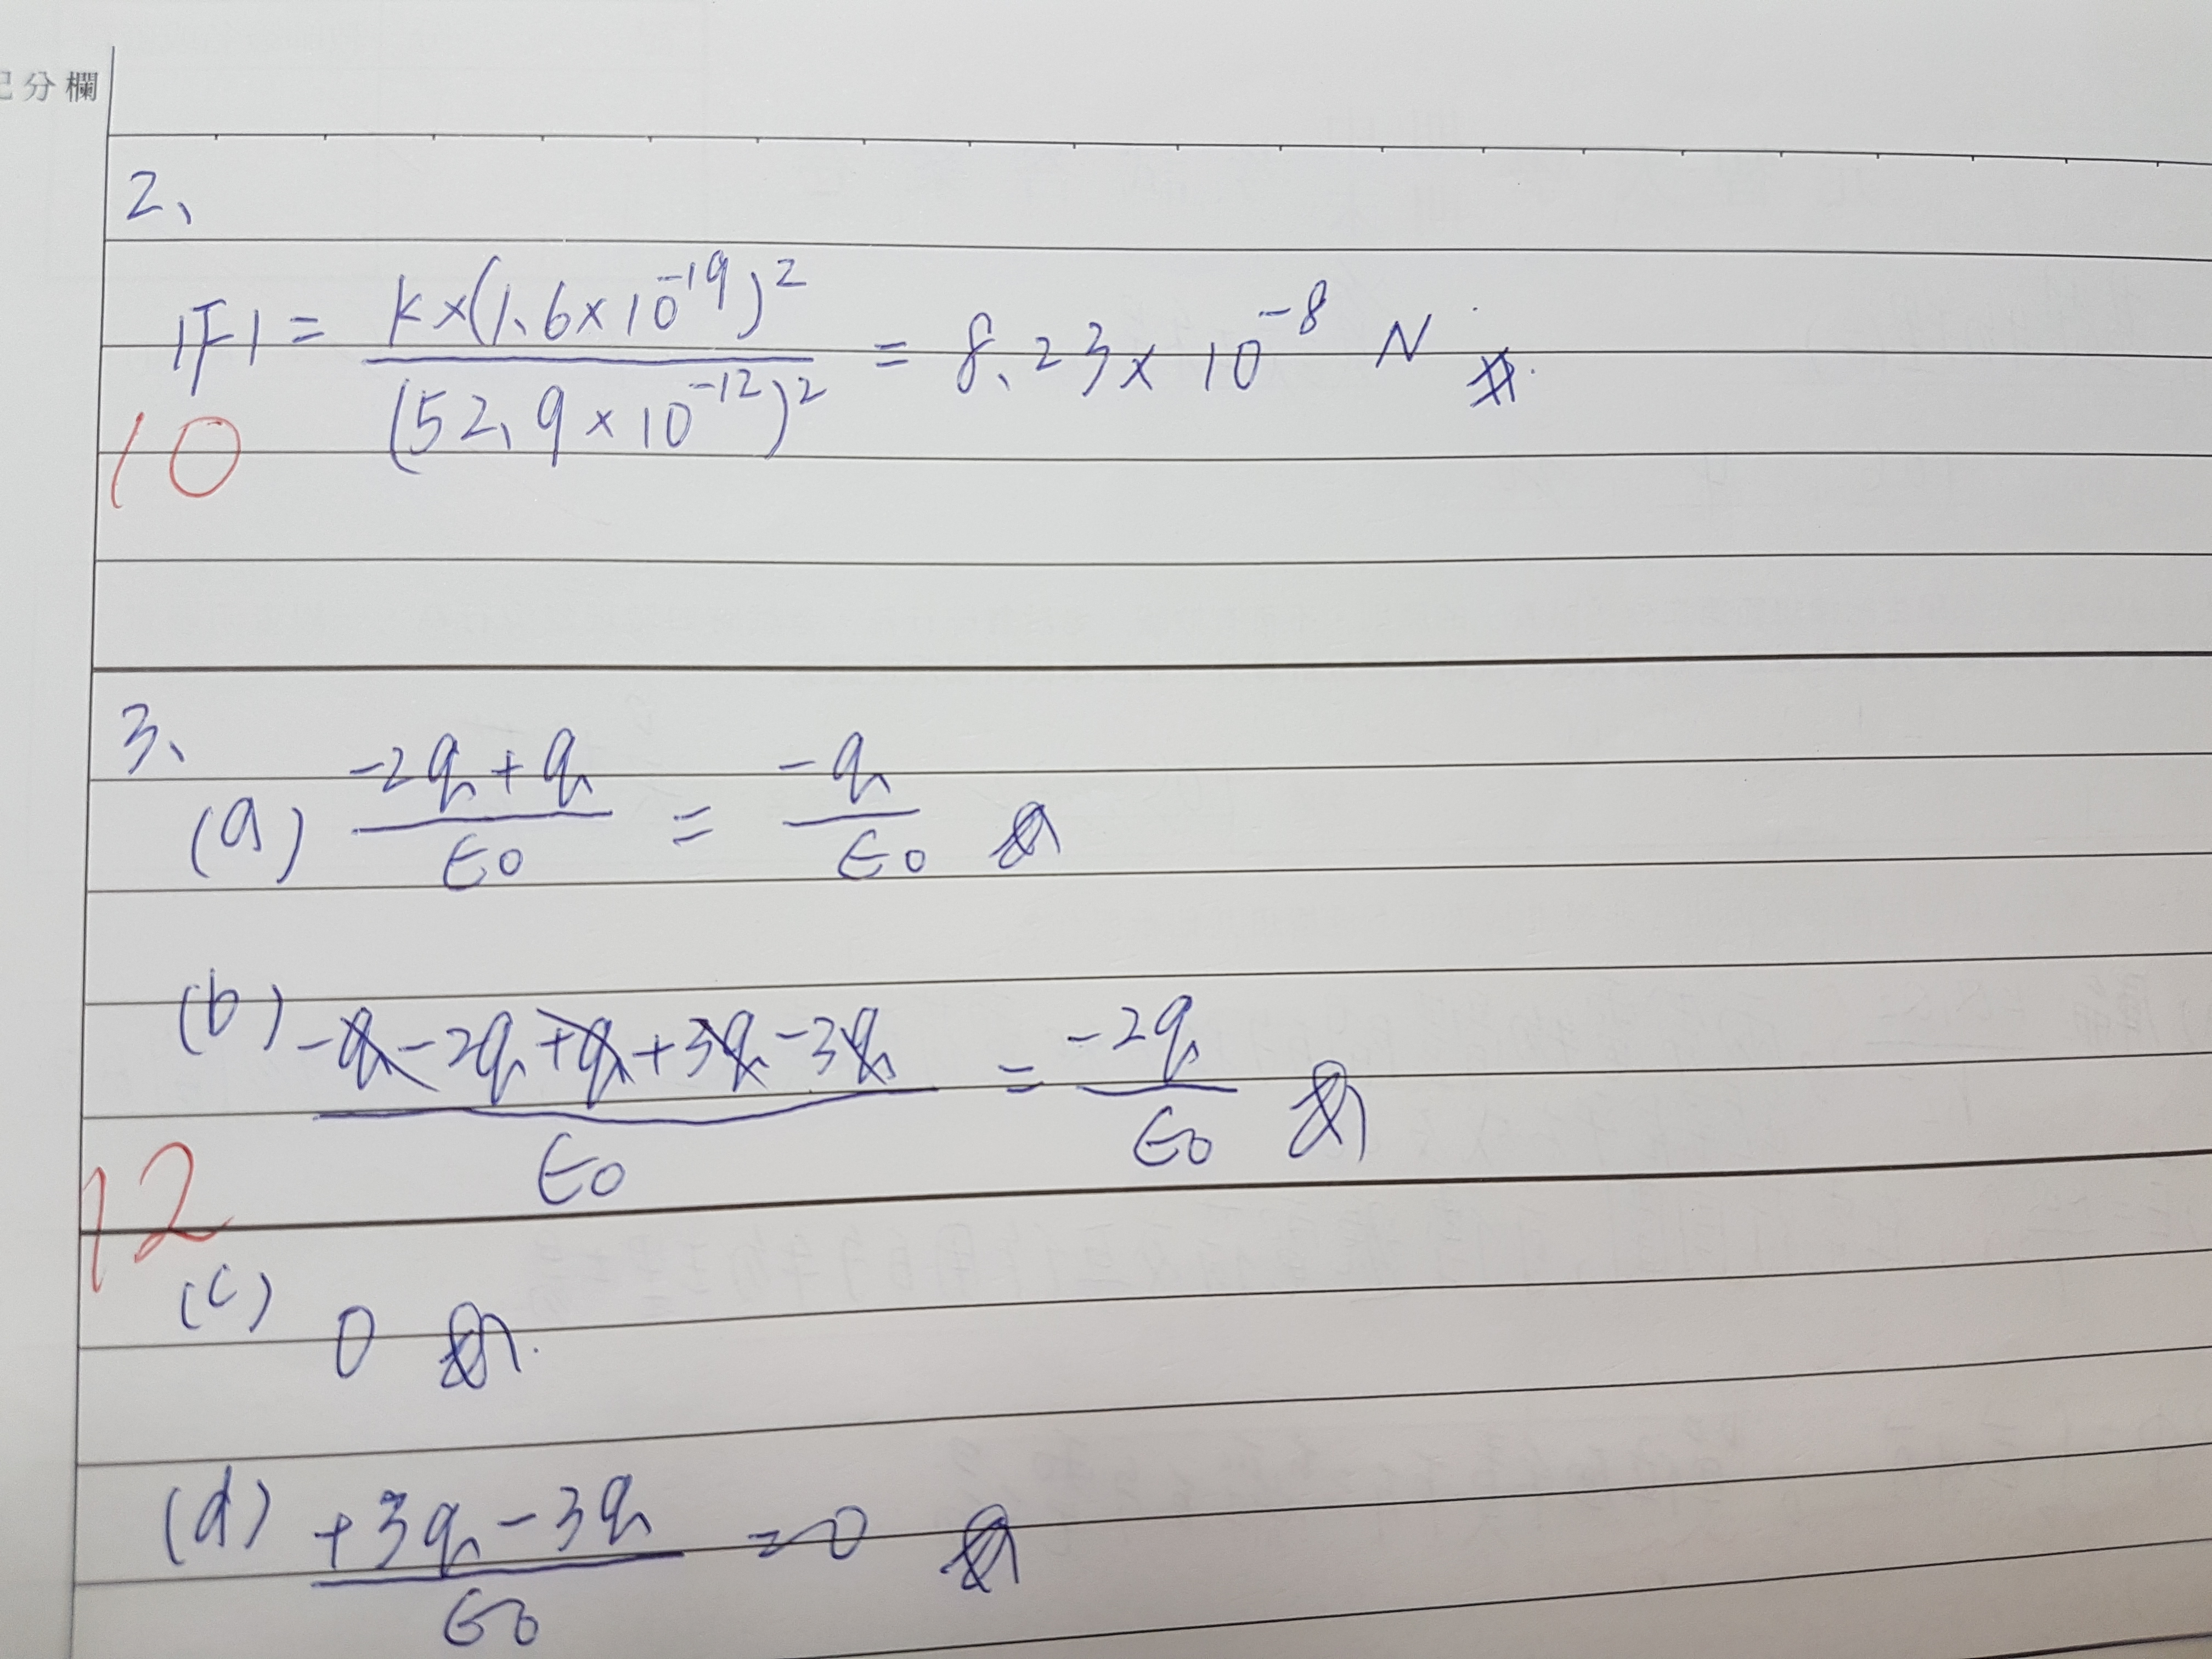 記分欄
2、
|F| = k×(1.6×10^-19)^2 / (52.9×10^-12)^2 = 8.23×10^-8 N #
10
3、
(a) -2q+q / ε0 = -q / ε0 #
(b) -q-2q+q+3q-3q / ε0 = -2q / ε0 #
12
(c) 0 #
(d) +3q-3q / ε0 = 0 #